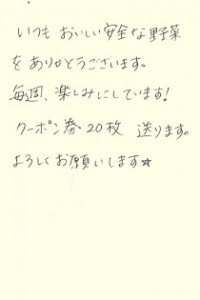 いつも おいしい安全な野菜
を ありがとうございます。
毎週、楽しみにしています!
クーポン券20枚 送ります。
よろしくお願いします☆